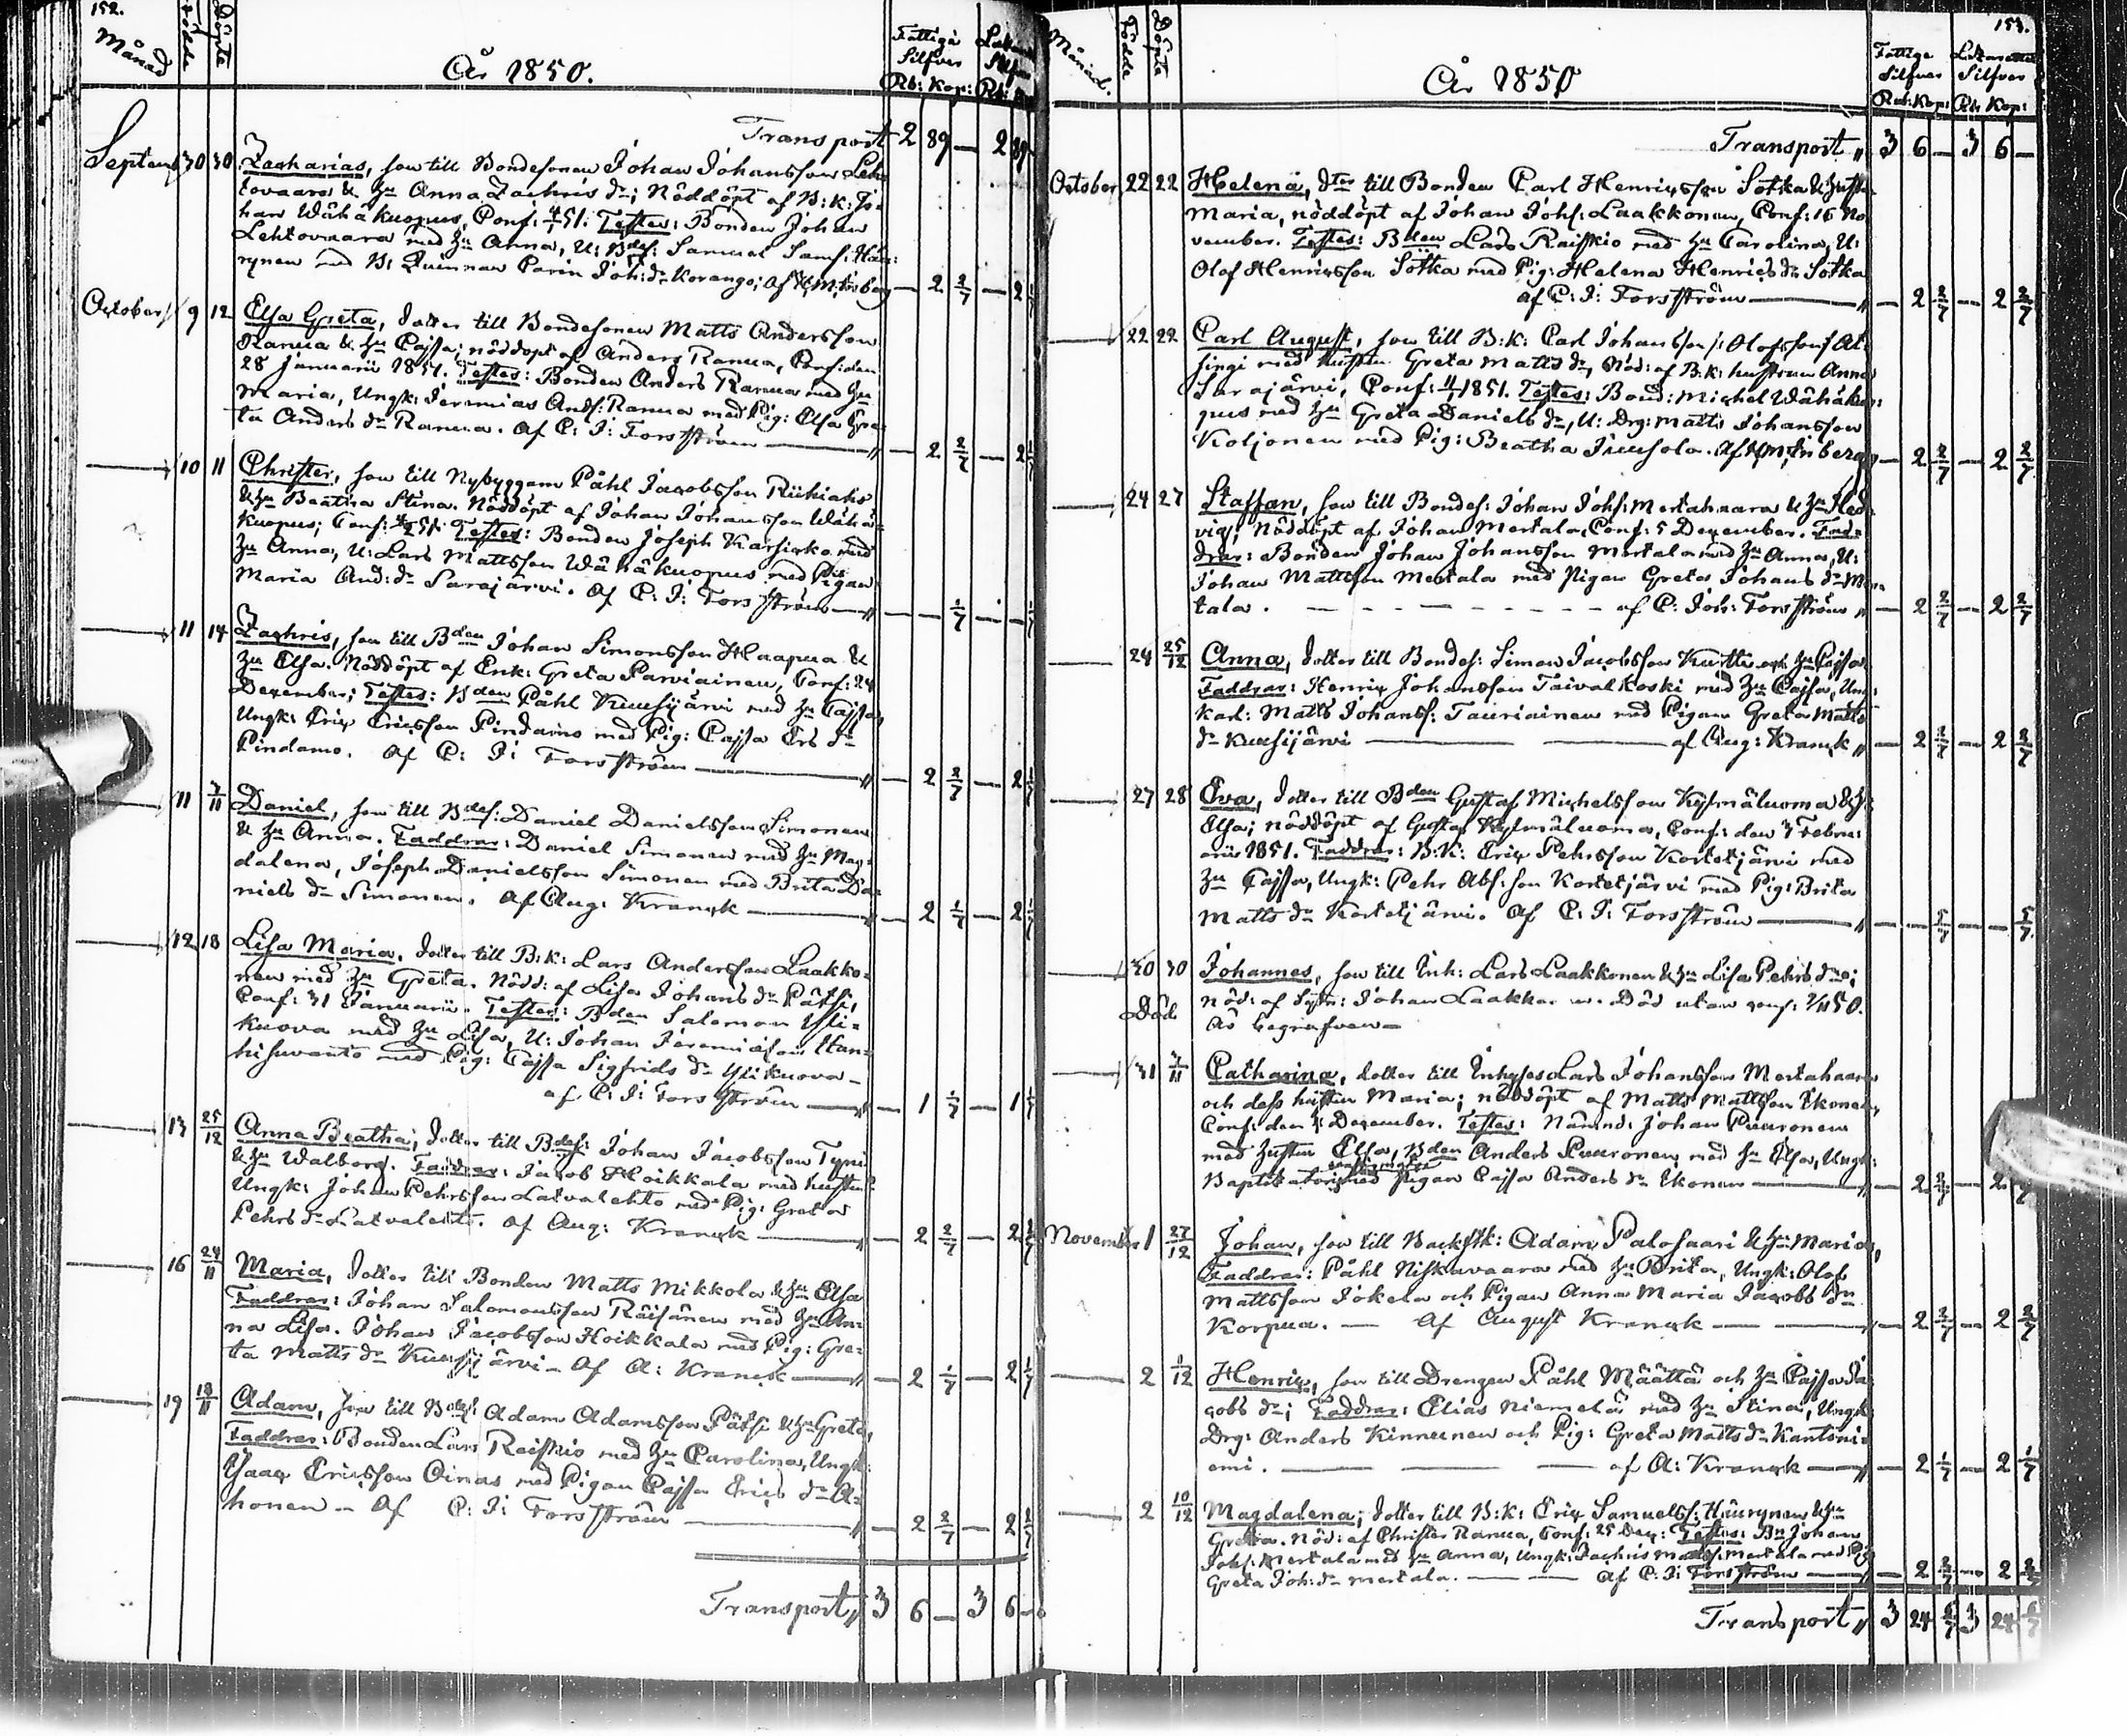 152.
Månad
Födde
Döpte
År 1850.
Fattiga
Silfver
Rb: Kop:
Silfver
Rb:
Transport 2 89 — 2 89
Septemb 30 30 Zacharias, son till Bondesonen Johan Johansson Leh-
tovaara & hu Anna Zachris dr; Nöddöpt af B: k: Jo-
han Wähäkuopus, Conf: 51. Testes: Bonden Johan
Lehtovaara med hu Anna, U: Bdes: Samuel Sams:
rynen med B: Qvinnan Carin Joh: dr Korango; af — 2 2/7 — 2
October 9 12 Elsa Greta, dotter till Bondesonen Matts Andersson
Ranua & hu Cajsa; nöddöpt af Anders Ranua, Conf: den
28 Januarii 1851. Testes: Bonden Anders Ranua med hu
Maria, Ungk: Jeremias Ands: Ranua med Pig: Elsa Gre-
ta Anders dr Ranua. Af C: J: Forsström — 2 2/7 — 2
10 11 Christer, son till Nybyggaren Påhl Jacobsson
& hu Beatha Stina. Nöddöpt af Johan Johansson Wähä-
kuopus; Conf: 51. Testes: Bonden Joseph Karsikko med
hu Anna, U: Lars Mattsson Wähäkuopus med Pigan
Maria And: dr Sarajärvi. Af C: J: Forsström
11 14 Zachris, son till Bden Johan Simonsson Haapua &
hu Elsa. Nöddöpt af Enk: Greta Parviainen, Conf: 24
December; Testes: Bden Påhl Kuusijärvi med hu Cajsa,
Ungk: Eric Ericsson Pindamo med Pig: Cajsa Ers dr
Pindamo. Af C: J: Forsström — 2 2/7 — 2
11 3/11 Daniel, son till Bdes: Daniel Danielsson Simonen
& hu Anna. Faddrar: Daniel Simonen med hu Mag-
dalena, Joseph Danielsson Simonen med Brita Da-
niels dr Simonen. Af Aug: Kranck — 2 1/7 — 2
12 13 Lisa Maria, dotter till B: k: Lars Andersson Laakko-
nen med hu Greta. Nödd: af Lisa Johans dr Pätsi,
Conf: 31 Januarii. Testes: Bden Salomon Yli-
kuova med hu Lisa, U: Johan Jeremiasson Han-
hisuvanto med Pig: Cajsa Sigfrids dr Ylikuova —
af C: J: Forsström — 1 1/7 — 1
13 25/12 Anna Beatha, dotter till Bdes: Johan Jacobsson Tyni
& hu Walborg. Faddrar: Jacob Hoikkala med hustru
Ungk: Johan Pehrsson Latvalehto med Pig: Greta
Pehrs dr Latvalehto. Af Aug: Kranck — 2 2/7 — 2
16 24/11 Maria, dotter till Bonden Matts Mikkola & hu Elsa
Faddrar: Johan Salomonsson Räisänen med hu An-
na Lisa. Johan Jacobsson Hoikkala med Pig: Gre-
ta Matts dr Kuusijärvi — Af A: Kranck — 2 1/7 — 2 1/7
19 Adam, son till Bdes: Adam Adamsson Pätsi & hu Greta,
Faddrar: Bonden Lars Raiskio med hu Carolina, Ungk:
Isaac Ericsson Oinas med Pigan Cajsa Erics dr A-
honen — Af C: J: Forsström — 2 2/7 — 2 2/7
Transport 3 6 — 3 6 —
153.
Månad.
Födde
Döpte
År 1850
Fattige
Silfver
Rub: Kop:
Silfver
Rb Kop:
Transport 3 6 — 3 6 —
October 22 22 Helena, dtr till Bonden Carl Henricsson Sotka & hustr
Maria, nöddöpt af Johan Johs: Laakkonen, Conf: 16 No
vember. Testes: Bden Lars Raiskio med hu Carolina, U:
Olof Henricsson Sotka med Pig: Helena Henrics dr Sotka
af C: J: Forsström — 2 2/7 — 2 2/7
22 22 Carl August, son till B: k: Carl Johansson /: Olofsson
med hustru Greta Matts dr, Nöd: af B: k: hustrun Anna
Sarajärvi, Conf: 1851. Testes: Bond: Michel Wähäkuo-
pus med hu Greta Daniels dr, U: Drg: Matts Johansson
Koljonen med Pig: Beatha — 2 2/7 — 2 2/7
24 27 Staffan, son till Bondes: Johan Johs: Mertahaara & hu Hed-
vig; Nöddöpt af Johan Mertala, Conf: 5 December. Fad-
drar: Bonden Johan Johansson Mertala med hu Anna, U:
Johan Mattsson Mertala med Pigan Greta Johans dr Mer-
tala. af C: Joh: Forsström — 2 2/7 — 2 2/7
24 25/12 Anna, dotter till Bondes: Simon Jacobsson Kurtti och hu Cajsa,
Faddrar: Henric Johansson Taivalkoski med hu Cajsa, Ung-
karl: Matts Johanss: Tauriainen med Pigan Greta Matts
dr Kuusijärvi — af Aug: Kranck — 2 2/7 — 2 2/7
27 28 Eva, dotter till Bden Gustaf Michelsson Kysmäluoma & h
Elsa; nöddöpt af Gustaf Kysmäluoma, Conf: den 3 Febru-
arii 1851. Faddrar: B: k: Eric Pehrsson Kortetjärvi med
hu Cajsa, Ungk: Pehr Abs: son Kortetjärvi med Pig: Brita
Matts dr Kortetjärvi. Af C: J: Forsström — 5/7 — 5/7
30 30 Johannes, son till Inh: Lars Laakkonen & hu Lisa Pehrs dr;
Död nöd: af Johan Död utan conf: 50.
begrafven —
31 3/11 Catharina, dotter till Inhyses Lars Johansson Mertahaara
och dess hustru Maria; nöddöpt af Matts Mattsson Ekonen,
Conf: den December. Testes: Nämnd: Johan Puuronen
med hustru Elsa, Bden Anders Puuronen med hu Elsa, Ungk:
Baptizatoris med Pigan Cajsa Anders dr Ekonen — 2 2/7 — 2
November 1 27/12 Johan, son till Backstk: Adam Palosaari & hu Maria,
Faddrar: Påhl Niskavaara med hu Brita, Ungk: Olof
Mattsson Jokela och Pigan Anna Maria Jacobs dr
Korpua. — Af August Kranck — 2 2/7 — 2 2/7
2 1/12 Henric, son till Drengen Påhl Määttä och hu Cajsa Ja-
cobs dr; Faddrar: Elias Niemelä med hu Stina, Ungk:
Drg: Anders Kinnunen och Pig: Greta Matts dr Kantoni-
emi. — af A: Kranck — 2 1/7 — 2 1/7
2 10/12 Magdalena, dotter till B: k: Eric Samuelss: Hämynen & hu
Greta. Nöd: af Christer Ranua, Conf: 25 Dec: Testes: Bn Johan
Johs: Mertala med hu Anna, Ungk: Zachris Matts: Mertala med Pig
Greta Joh: dr Mertala. — Af C: J: Forsström — 2 2/7 — 2 2/7
Transport 3 24 6/7 3 24 6/7